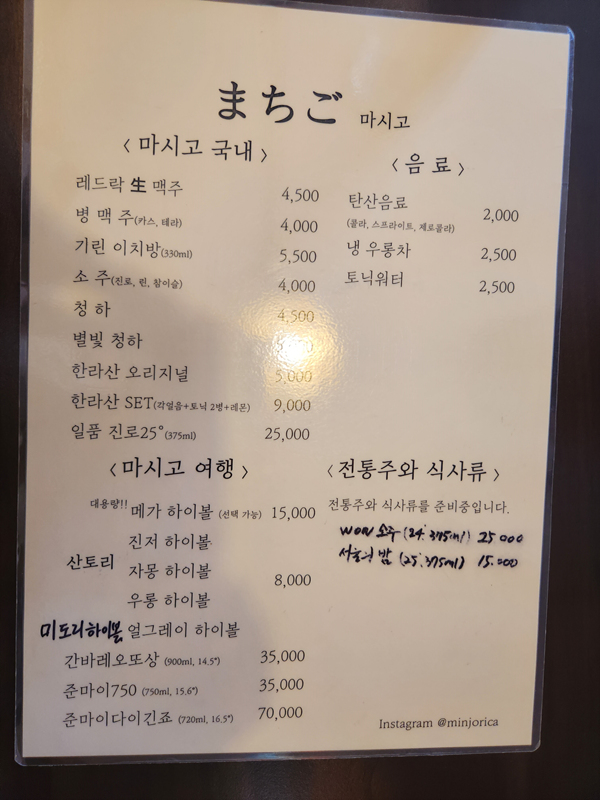 まちご 마시고
< 마시고 국내 >
레드락 生 맥주 4,500
병 맥 주(카스, 테라) 4,000
기린 이치방(330ml) 5,500
소 주(진로, 린, 참이슬) 4,000
청 하 4,500
별빛 청하
한라산 오리지널 5,000
한라산 SET(각얼음+토닉 2병+레몬) 9,000
일품 진로25°(375ml) 25,000
< 음 료 >
탄산음료 2,000
(콜라, 스프라이트, 제로콜라)
냉 우롱차 2,500
토닉워터 2,500
< 마시고 여행 >
대용량!! 메가 하이볼 (선택 가능) 15,000
진저 하이볼
산토리 자몽 하이볼 8,000
우롱 하이볼
미도리하이볼 얼그레이 하이볼
간바레오또상 (900ml, 14.5°) 35,000
준마이750 (750ml, 15.6°) 35,000
준마이다이긴죠 (720ml, 16.5°) 70,000
< 전통주와 식사류 >
전통주와 식사류를 준비중입니다.
WON 소주 (24°, 375ml) 25,000
서울의 밤 (25°, 375ml) 15,000
Instagram @minjorica